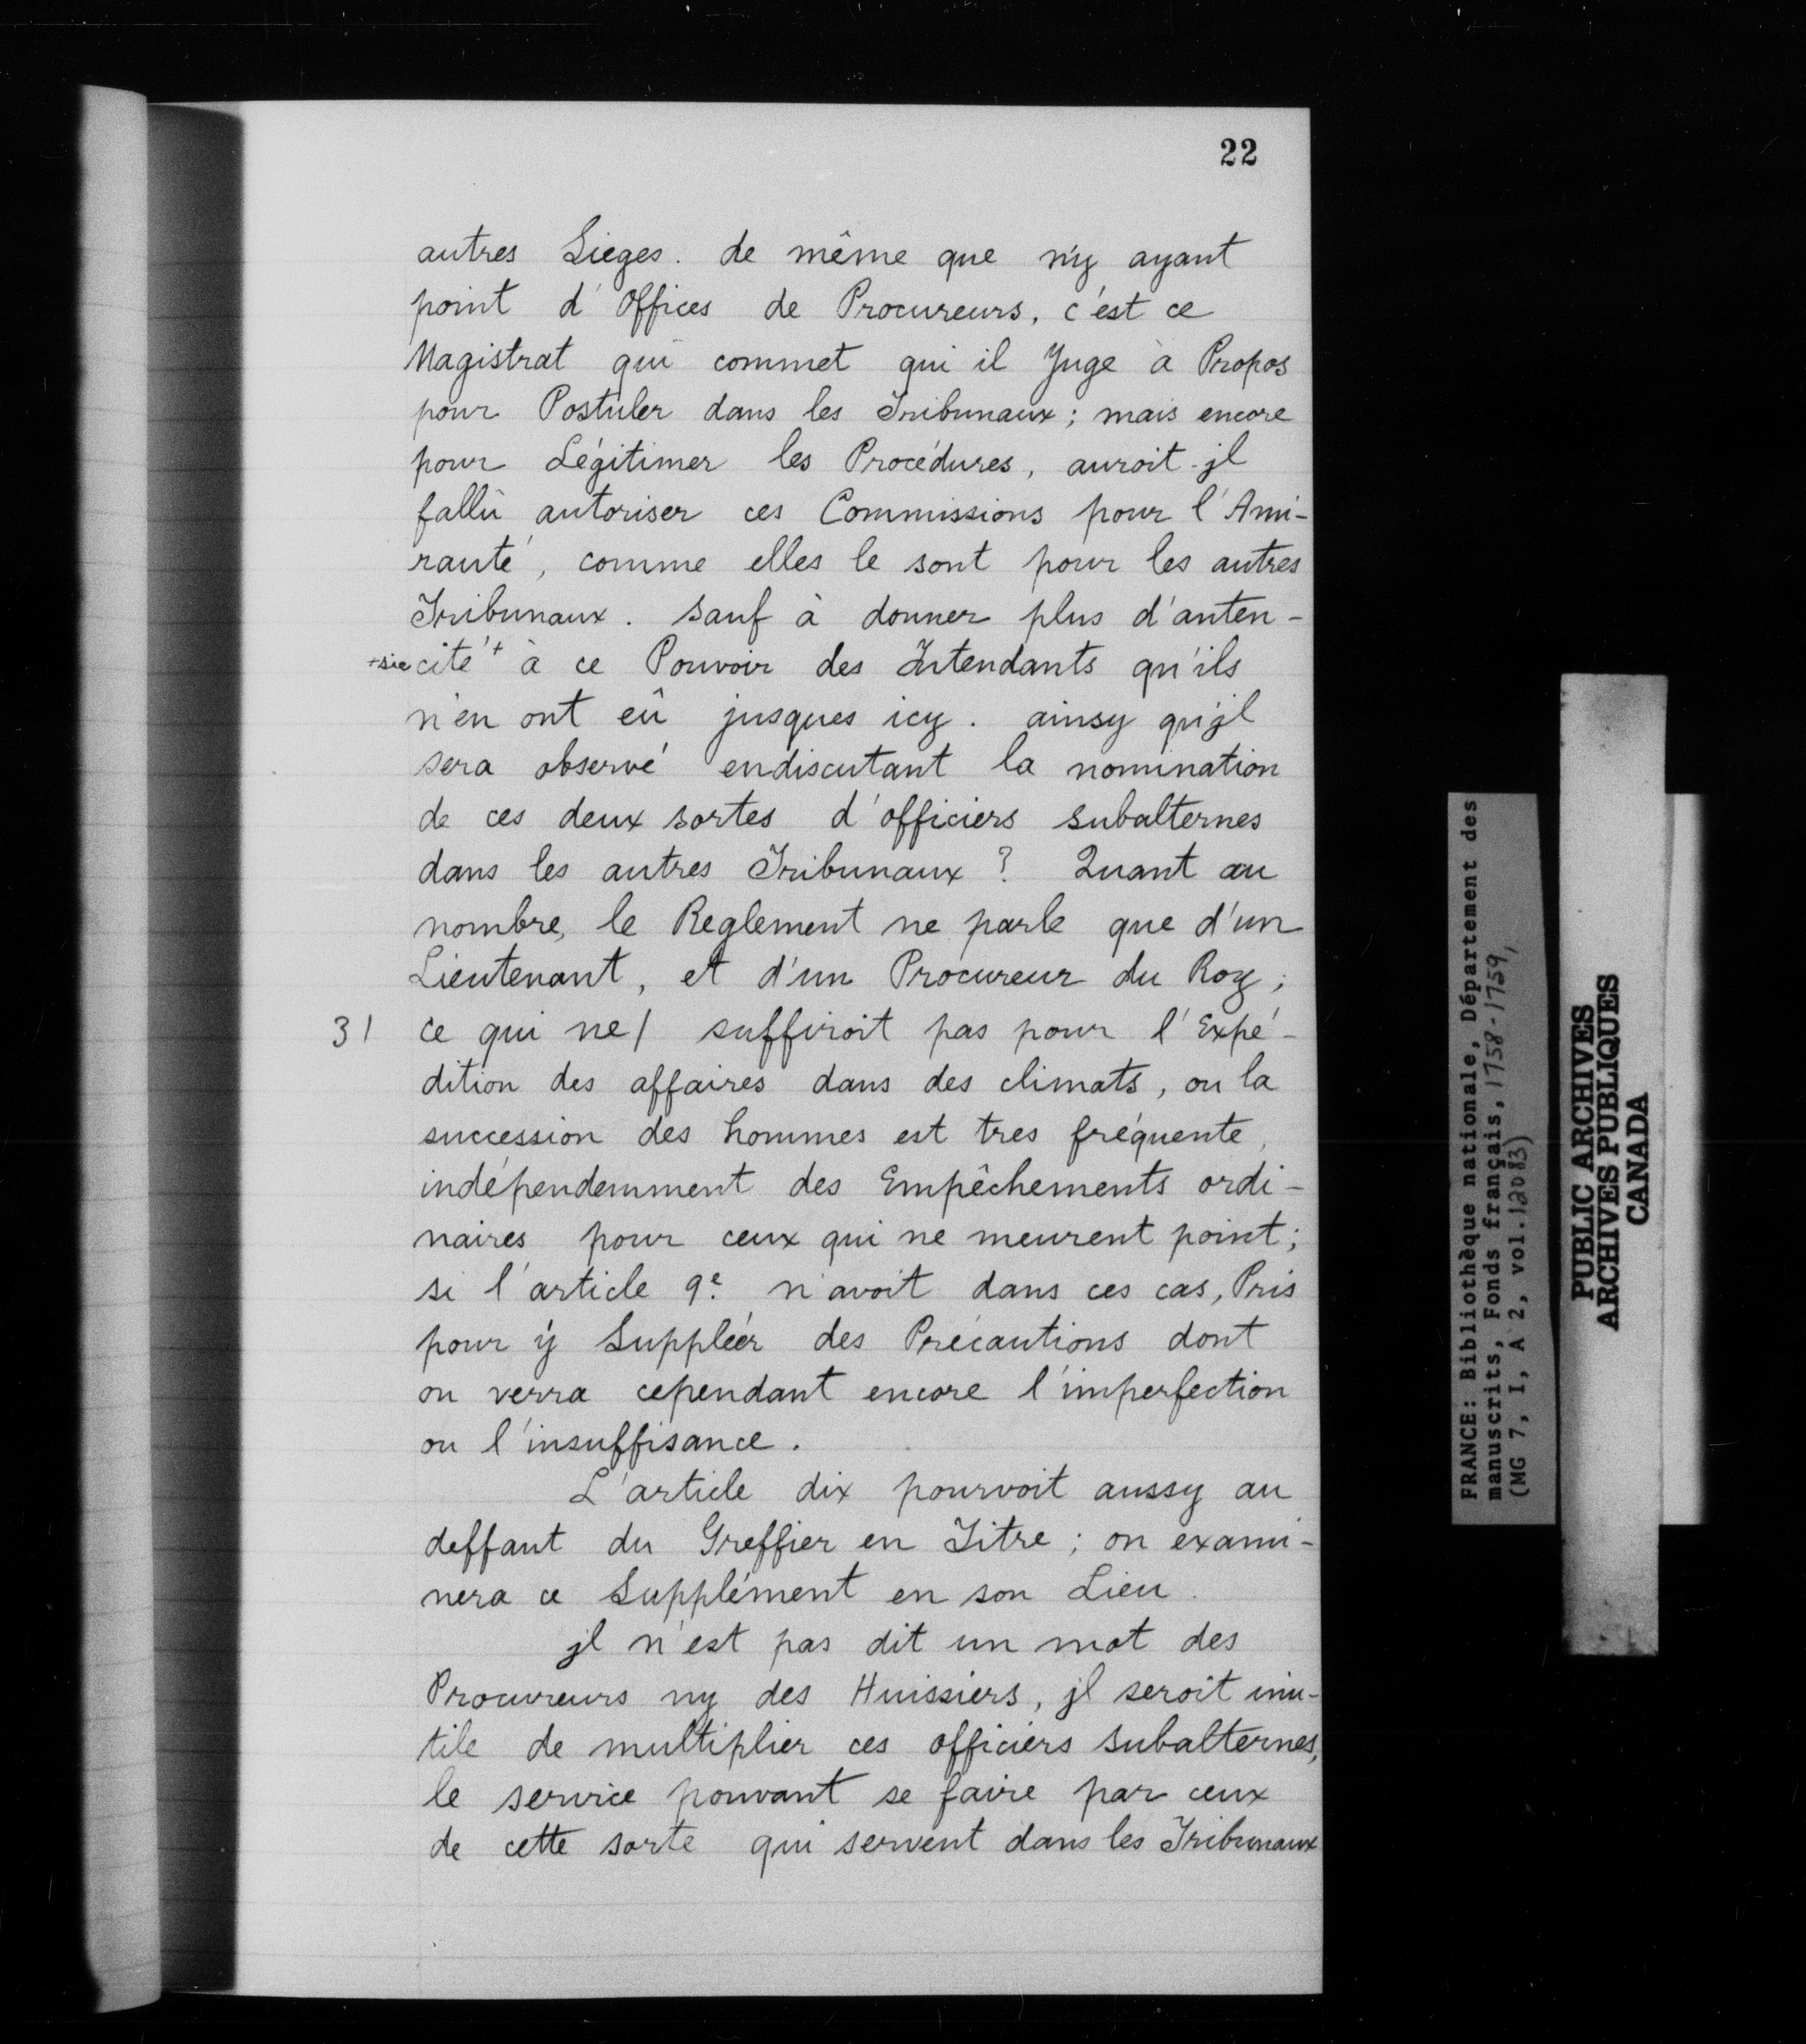 22
autres Sieges. de même que n'y ayant
point d'Offices de Procureurs, c'est ce
Magistrat qui commet qui il Juge à Propos
pour Postuler dans les Tribunaux; mais encore
pour Légitimer les Procédures, auroit-jl
fallû autoriser ces Commissions pour l'Ami-
rauté, comme elles le sont pour les autres
Tribunaux. sauf à donner plus d'auten-
+sic cité+ à ce Pouvoir des Intendants qu'ils
n'en ont eû jusques icy. ainsy qu'jl
sera observé endiscutant la nomination
de ces deux sortes d'officiers subalternes
dans les autres Tribunaux? Quant au
nombre, le Reglement ne parle que d'un
Lieutenant, et d'un Procureur du Roy;
31 ce qui ne/ suffiroit pas pour l'Expé-
dition des affaires dans des climats, ou la
succession des hommes est tres fréquente,
indépendemment des Empêchements ordi-
naires pour ceux qui ne meurent point;
si l'article 9e n'avoit dans ces cas, Pris
pour ÿ Suppléer des Précautions dont
on verra cependant encore l'imperfection
ou l'insuffisance.
L'article dix pourvoit aussy au
deffaut du Greffier en Titre; on exami-
nera ce Supplément en son Lieu.
jl n'est pas dit un mot des
Procureurs ny des Huissiers, jl seroit inu-
tile de multiplier ces officiers subalternes,
le service pouvant se faire par ceux
de cette sorte qui servent dans les Tribunaux
FRANCE: Bibliothèque nationale, Département des
manuscrits, Fonds français, 1758-1759,
(MG 7, I, A 2, vol. 12083)
PUBLIC ARCHIVES
ARCHIVES PUBLIQUES
CANADA